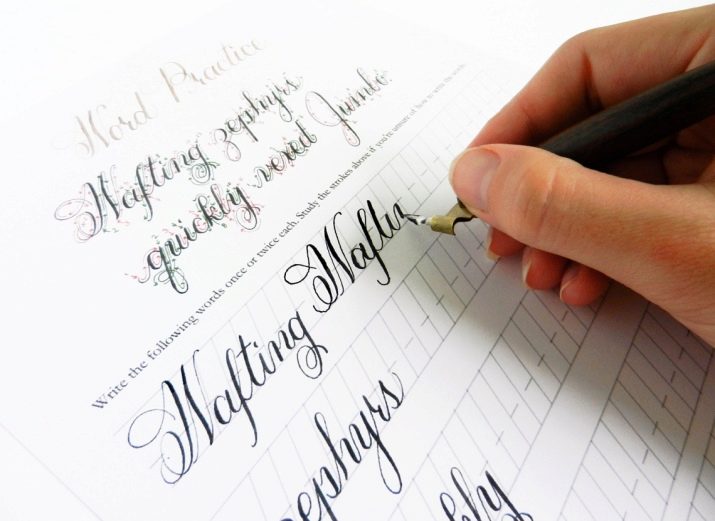 Word Practice
Wafting zephyrs
quickly vexed Jumbo.
Write the following words once or twice each. Study the strokes above if you're unsure of how to write the words.
Wafting Waftin
zephyrs